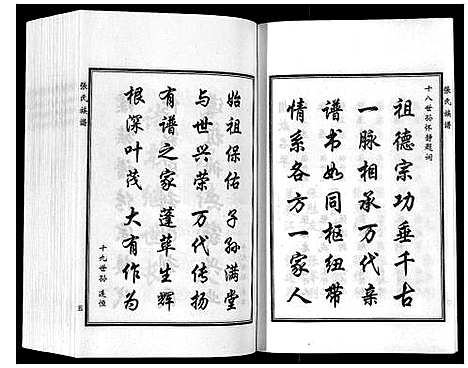 張氏族譜
十八世孫懷靜題詞
祖德宗功垂千古
一脉相承万代亲
谱书如同枢纽带
情系各方一家人
始祖保佑 子孙满堂
与世兴荣 万代传扬
有谱之家 蓬荜生辉
根深叶茂 大有作为
十九世孙 连恒
張氏族譜
五